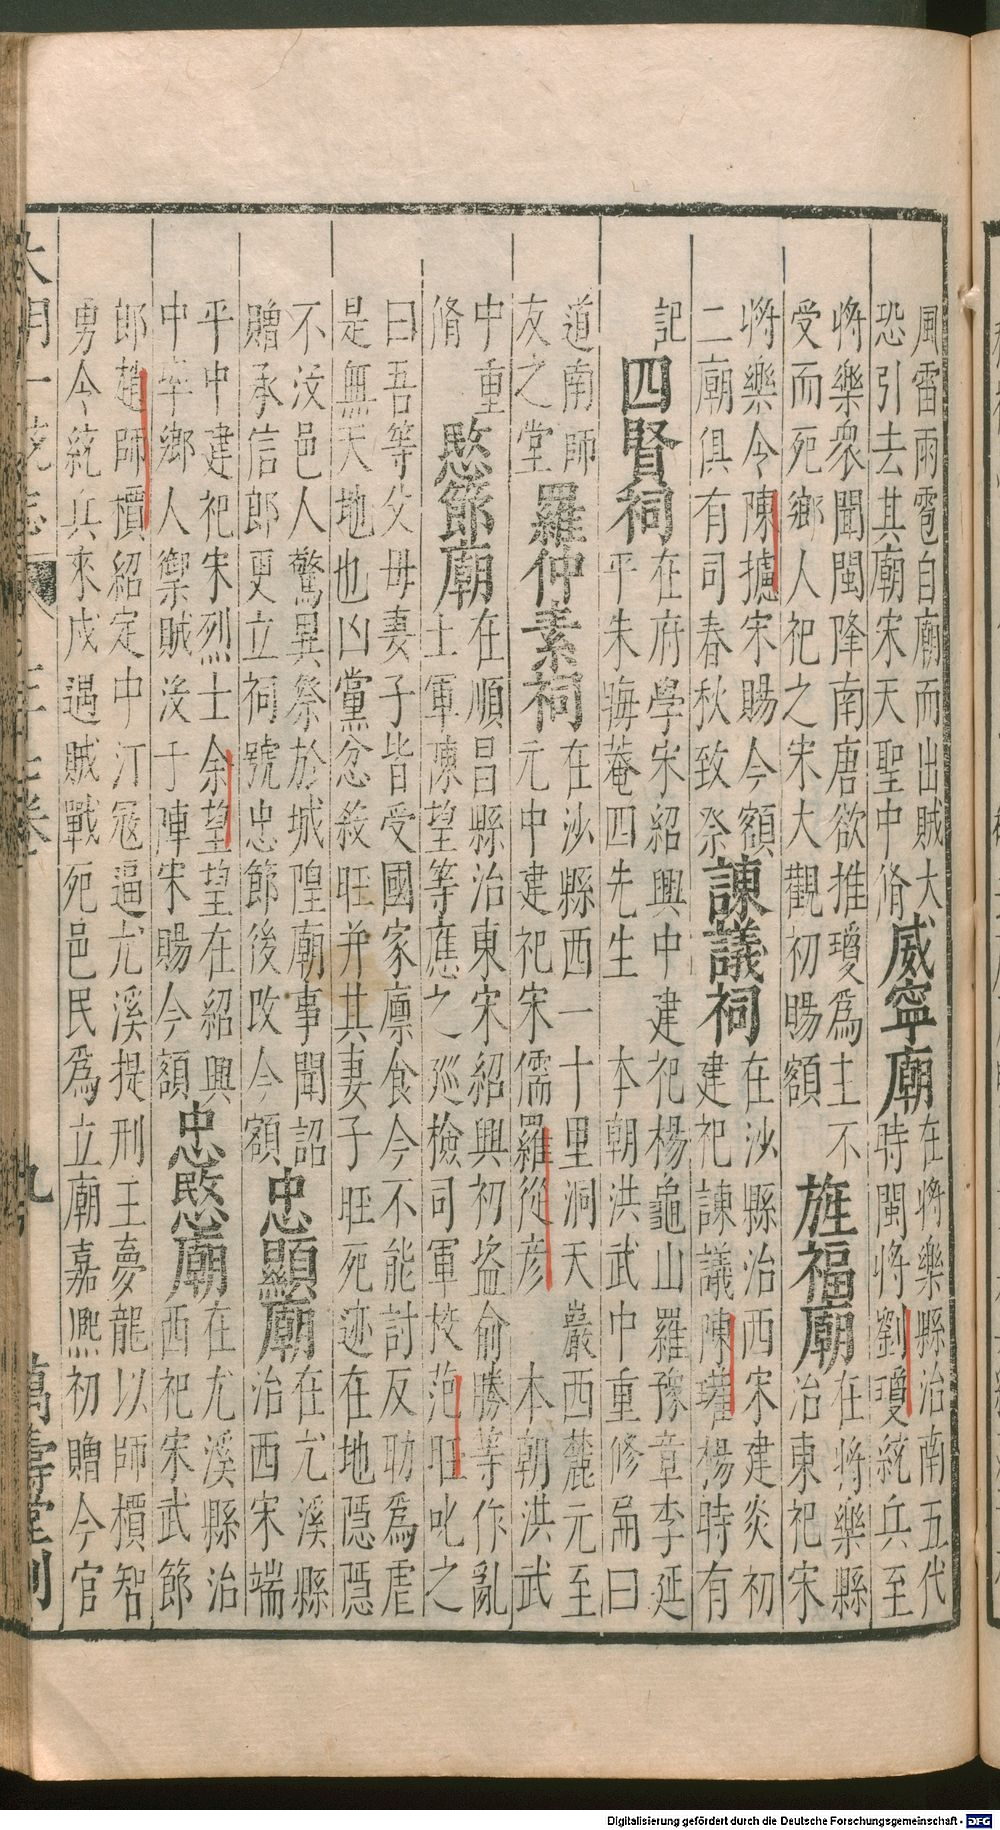 風雷雨雹自廟而出賊大
恐引去其廟宋天聖中脩
威寧廟
在將樂縣治南五代
時閩將劉瓊統兵至
將樂衆聞閩降南唐欲推瓊爲主不
受而死鄉人祀之宋大觀初賜額
旌福廟
在將樂縣
治東祀宋
將樂令陳攄宋賜今額
二廟俱有司春秋致祭
諫議祠
在沙縣治西宋建炎初
建祀諫議陳瓘楊時有
記
四賢祠
在府學宋紹興中建祀楊龜山羅豫章李延
平朱晦菴四先生 本朝洪武中重修扁曰
道南師
友之堂
羅仲素祠
在沙縣西一十里洞天巖西麓元至
元中建祀宋儒羅從彦 本朝洪武
中重
脩
愍節廟
在順昌縣治東宋紹興初盗俞勝等作亂
土軍陳望等應之巡檢司軍校范旺叱之
曰吾等父母妻子皆受國家廪食今不能討反助爲虐
是無天地也凶黨忿殺旺并其妻子旺死迹在地隱隱
不没邑人驚異祭於城隍廟事聞詔
贈承信郎更立祠號忠節後改今額
忠顯廟
在尤溪縣
治西宋端
平中建祀宋烈士余望望在紹興
中率鄉人禦賊没于陣宋賜今額
忠愍廟
在尤溪縣治
西祀宋武節
郎趙師檟紹定中汀冦逼尤溪提刑王夢龍以師檟智
勇令統兵來戍遇賊戰死邑民爲立廟嘉熈初贈今官
大明一統志
卷
萬壽堂刊
Digitalisierung gefördert durch die Deutsche Forschungsgemeinschaft - DFG